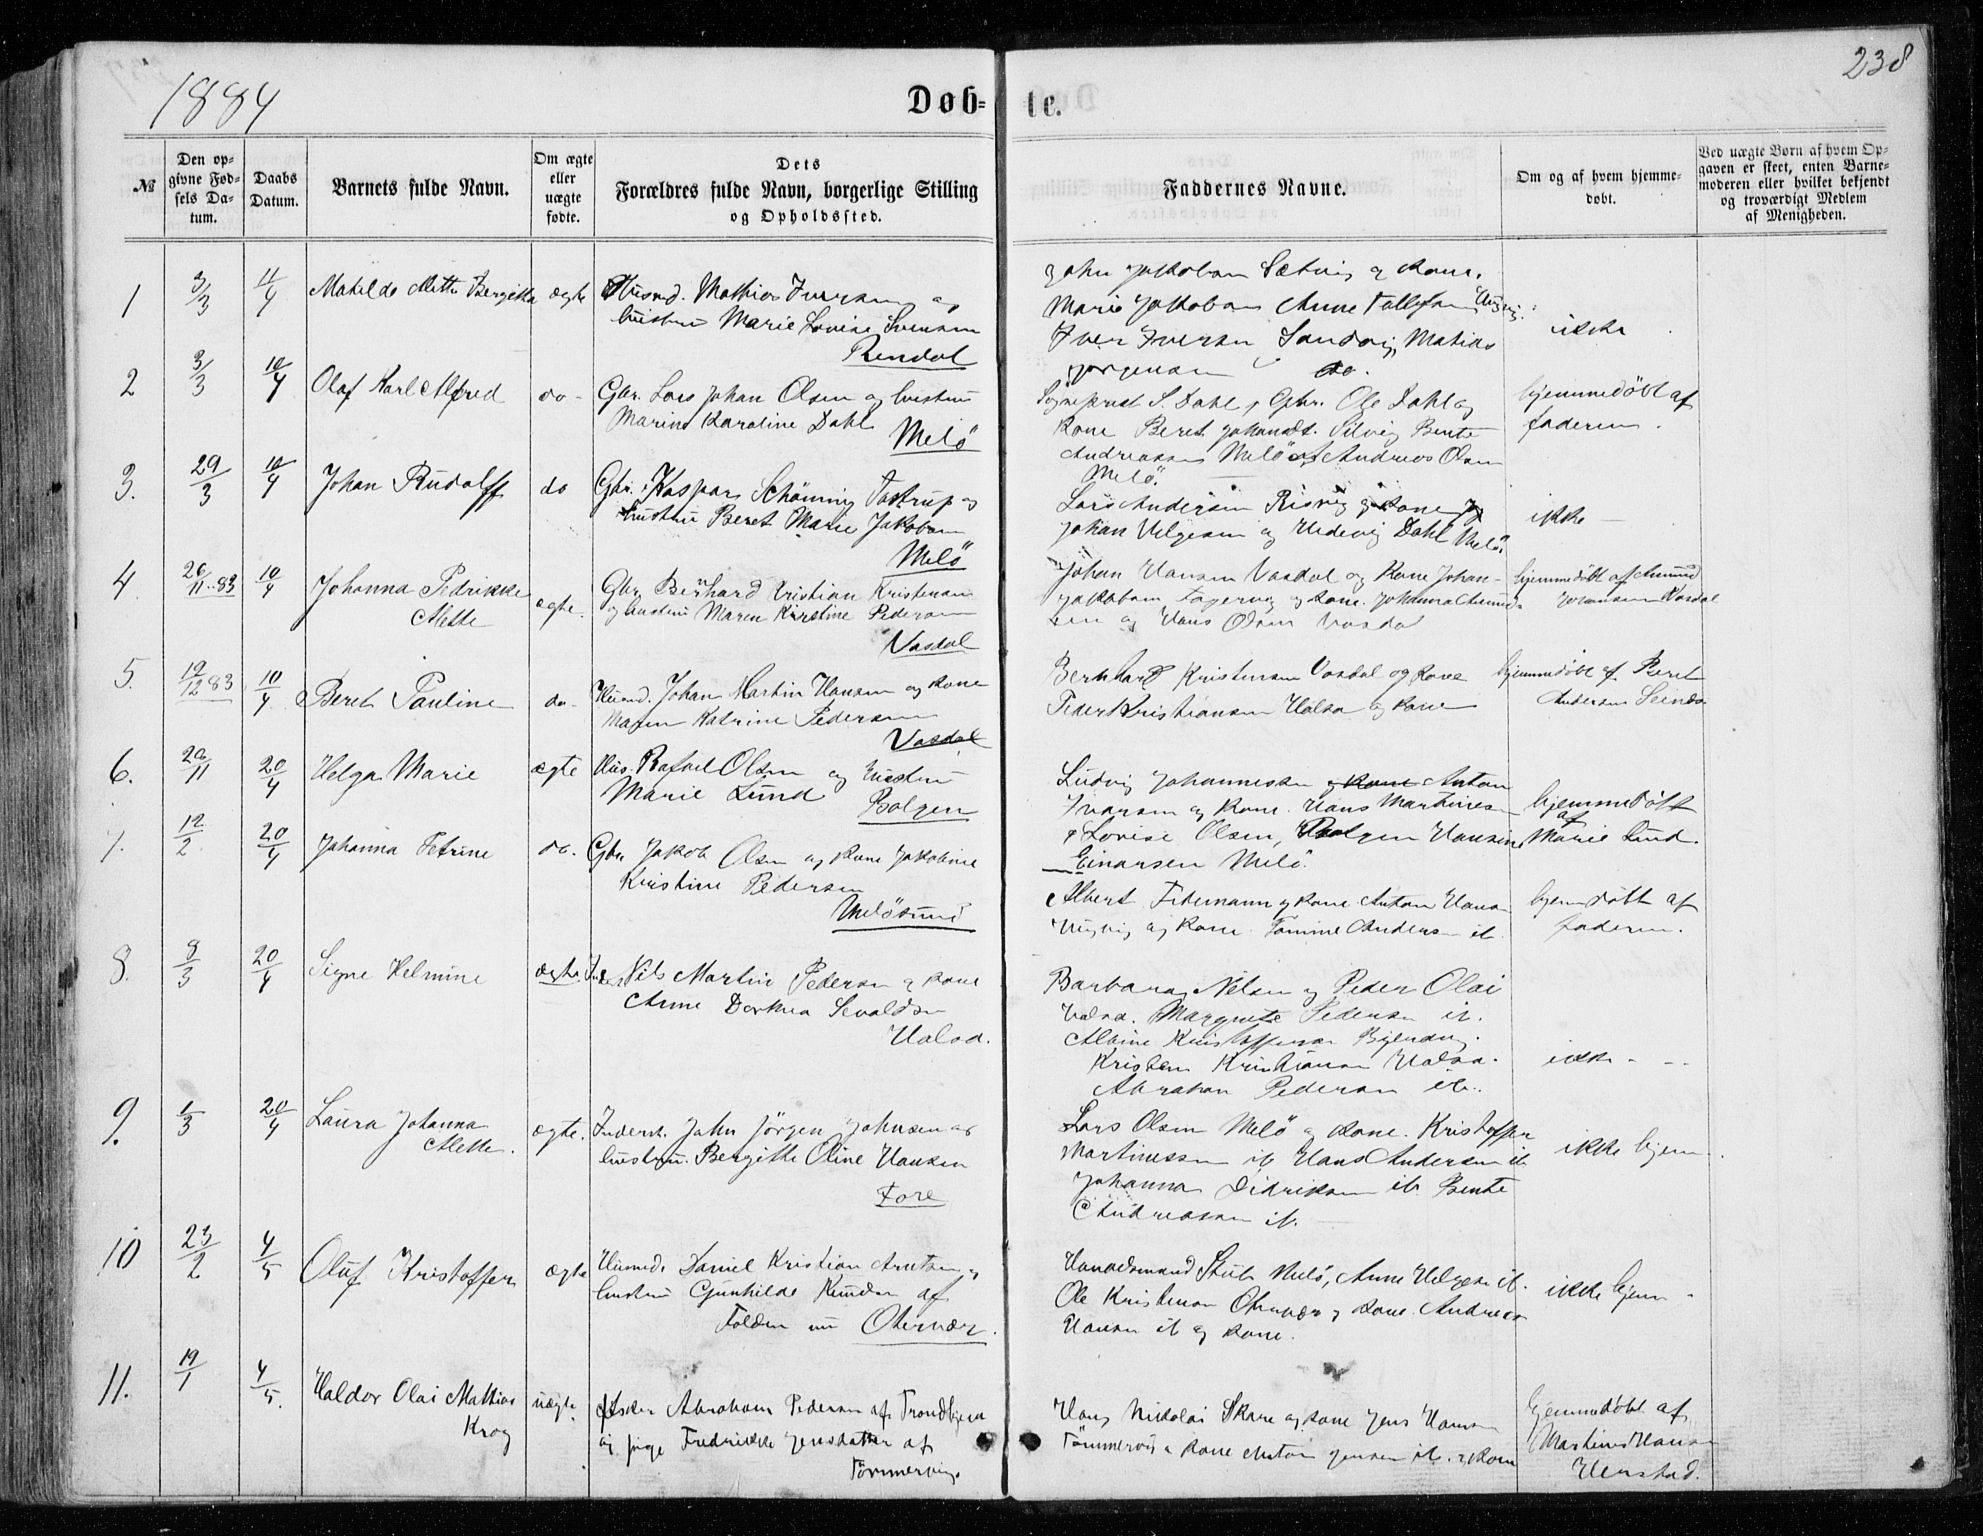 1884
Døb- te.
238
№
Den opgivne Fødsels Datum.
Daabs Datum.
Barnets fulde Navn.
Om ægte eller uægte fødte.
Dets Forældres fulde Navn, borgerlige Stilling og Opholdssted.
Faddernes Navne.
Om og af hvem hjemmedøbt.
Ved uægte Børn af hvem Opgaven er skeet, enten Barnemoderen eller hvilket bekjendt og troværdigt Medlem af Menigheden.
1 3/3 11/4 Matilde Mette Bergitta ægte Husmd. Mathias Iversen og
hustru Marie Lovise Svensen
Rendal
John Jakobsen Sætvig og Kone.
Marie Jakobsen Anne Tollefsen
Iver Iversen Sandvig, Matias
Jørgensen do.
ikke
2 3/3 10/4 Olaf Karl Alfred do- Gbr. Lars Johan Olsen og hustru
Marine Karoline Dahl
Melö
Sogneprest S. Dahl, Gbr. Ole Dahl og
Kone Beret Johansdt. Selvig Bente
Andreassen Melö og Andreas Olsen
Melö.
hjemmedöbt af
faderen.
3. 29/3 10/4 Johan Rudolff do Gbr. Kaspar Schönning Tostrup og
hustru Beret Marie Jakobsen
Melö
Lars Andersen Risvig og Kone
Johan Helgesen og Hedevig Dahl Melö.
ikke
4 26/11..83 10/4 Johanna Pedrikke
Mette
ægte. Gbr. Bernhard Kristian Kristensen
og hustru Maren Kirstine Pedersen
Vasdal
Johan Hansen Vasdal og Kone Johan
Jakobsen og Kone. Johanna Amund-
sen og Hans Olsen Vasdal
hjemmedöbt af Amund
Johansen Vasdal
5. 19/12 83 10/4 Beret Pauline do- Husmd. Johan Martin Hansen og Kone
Maren Katrine Pedersen
Vasdal
Bernhard Kristensen Vasdal og Kone
Peder Kristiansen Halsa og Kone
hjemmedöbt af Beret
Andersen
6. 26/11 20/4 Helga Marie ægte Hus. Rafael Olsen og Hustru
Marie Lund
Bolgen
Ludvig Johannessen og Kone Anton
Ivarsen og Kone. Hans Martinesen
& Lovise Olsen, Bolgen Hansine
Einarsen Melö.
hjemmedöbt
af
Marie Lund.
7. 12/2 20/4 Johanna Petrine do. Gbr. Jakob Olsen og Kone Jakobine
Kristine Pedersen
Melösund
Albert Fidemann og Kone Anton Hansen
og Kone. Andersen ib.
hjemdöbt af
faderen.
8. 8/3 20/4 Signe Helmine ægte Nils Martin Pedersen og Kone
Anne Dorthea Sevaldsen
Halsa.
Barbara Nilsen og Peder Olai
Halsa. Margrete Pedersen ib.
Albine Kristoffersen
Kristen Kristiansen Halsa.
Abraham Pedersen ib.
ikke - --
9. 1/3 20/4 Laura Johanna
Mette.
ægte. Inderst. John Jörgen Johnsen og
hustru. Bergitte Oline Hansen
Fore
Lars Olsen Melö og Kone. Kristoffer
Martinussen ib Hans Andersen ib
Johanna Didriksen ib Bente
Andreassen ib.
ikke hjem
10 23/2 4/5 Oluf Kristoffer ægte Husmd. Daniel Kristian Arntsen og
hustru Gunhilde Knudsen af
Folden nu Otervær.
Handelsmand Stub Melö, Anne Helgesen ib.
Ole Kristensen Otervær og Kone Andreas
Hansen ib og Kone.
ikke hjem
11. 19/1 4/5. Haldor Olai Mathias
Krog
uægte Abraham Pedersen af Trondhjem
og pige Fredrikke Jensdatter af
Tömmervig.
Hans Nikolai Skare og Kone Jens Hansen
Tömmervig & Kone Anton Jensen ib. & Kone
hjemmedöbt af
Martines Hansen
Henstad.